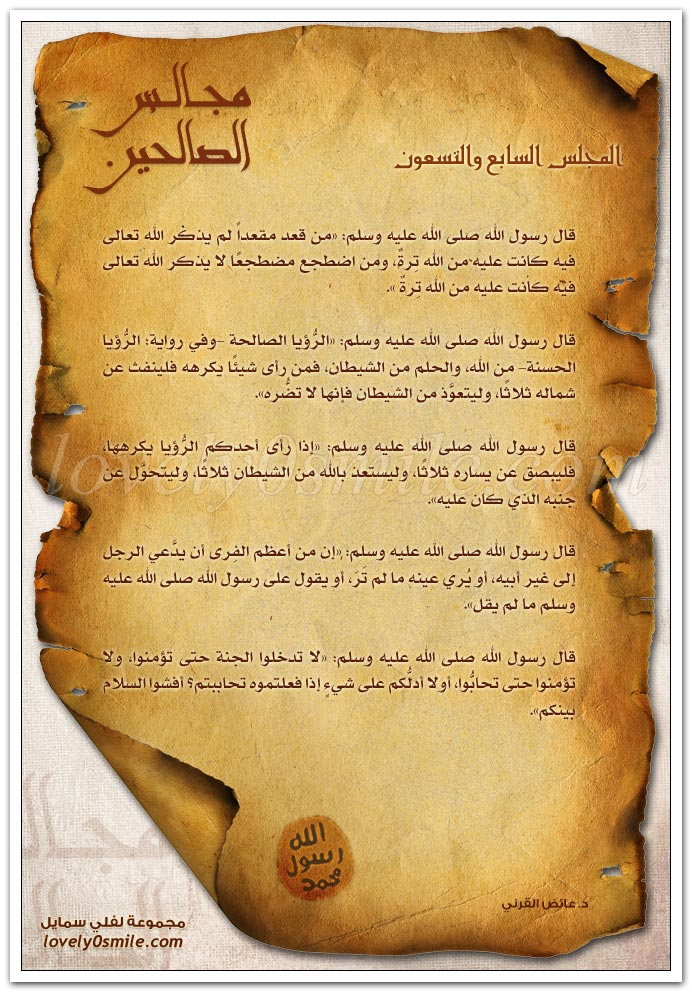 مجالس
الصالحين
المجلس السابع والتسعون
قال رسول الله صلى الله عليه وسلم: «من قعد مقعداً لم يذكر الله تعالى
فيه كانت عليه من الله تِرةٌ، ومن اضطجع مضطجعًا لا يذكر الله تعالى
فيه كانت عليه من الله تِرةٌ».
قال رسول الله صلى الله عليه وسلم: «الرُّؤيا الصالحة -وفي رواية: الرُّؤيا
الحسنة- من الله، والحلم من الشيطان، فمن رأى شيئًا يكرهه فلينفث عن
شماله ثلاثًا، وليتعوَّذ من الشيطان فإنها لا تضُّره».
قال رسول الله صلى الله عليه وسلم: «إذا رأى أحدكم الرُّؤيا يكرهها،
فليبصق عن يساره ثلاثًا، وليستعذ بالله من الشيطان ثلاثًا، وليتحوَّل عن
جنبه الذي كان عليه».
قال رسول الله صلى الله عليه وسلم: «إن من أعظم الفِرى أن يدَّعي الرجل
إلى غير أبيه، أو يُري عينه ما لم تَرَ، أو يقول على رسول الله صلى الله عليه
وسلم ما لم يقل».
قال رسول الله صلى الله عليه وسلم: «لا تدخلوا الجنة حتى تؤمنوا، ولا
تؤمنوا حتى تحابُّوا، أولا أدلُّكم على شيءٍ إذا فعلتموه تحاببتم؟ أفشوا السلام
بينكم».
lovely0smile.com
الله
رسول
محمد
د. عائض القرني
مجموعة لفلي سمايل
lovely0smile.com